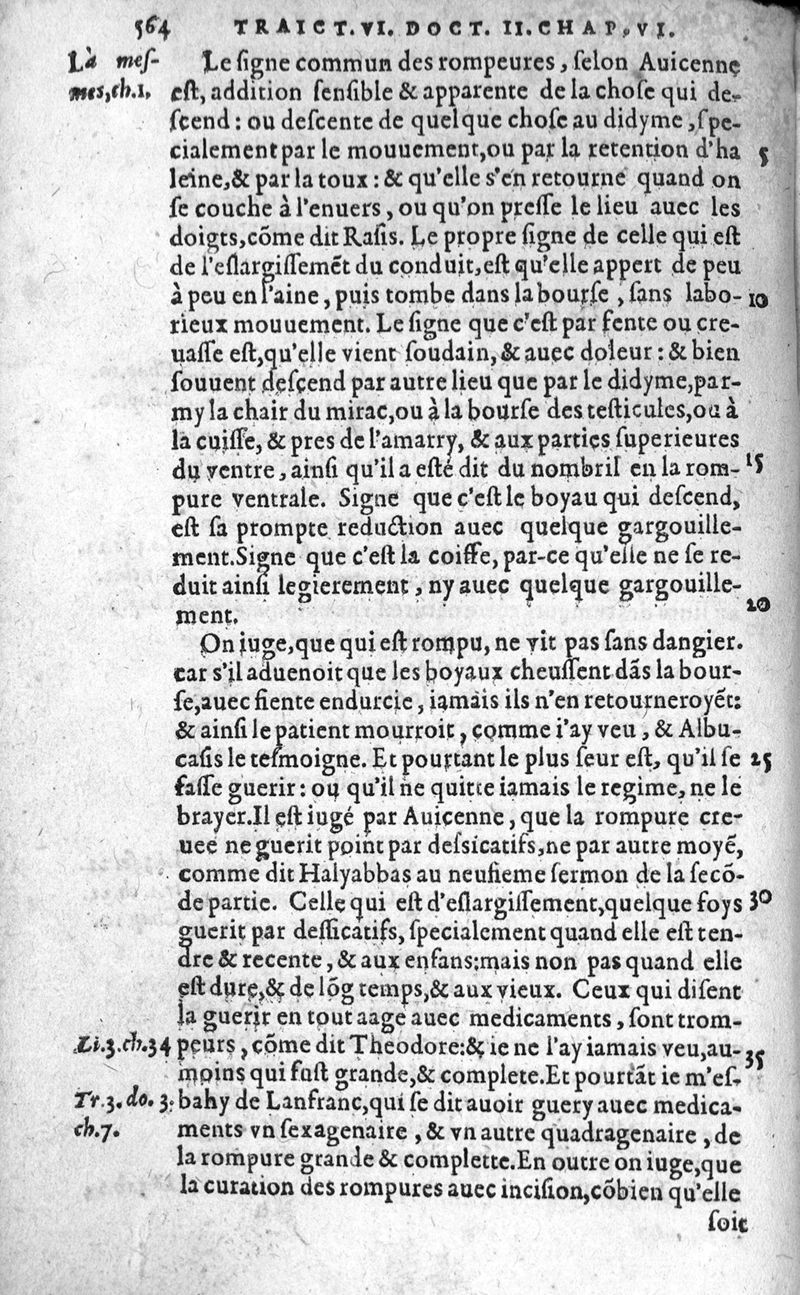 564 TRAICT. VI. DOCT. II. CHAP. VI.
Là meſ- Le ſigne commun des rompeures, ſelon Auicenne
mes, ch. 1. eſt, addition ſenſible & apparente de la choſe qui de-
ſcend : ou deſcente de quelque choſe au didyme, ſpe-
cialement par le mouuement, ou par la retention d'ha 5
leine, & par la toux : & qu'elle s'en retourne quand on
ſe couche à l'enuers, ou qu'on preſſe le lieu auec les
doigts, cõme dit Raſis. Le propre ſigne de celle qui eſt
de l'eſlargiſſemẽt du conduit, eſt qu'elle appert de peu
à peu en l'aine, puis tombe dans la bourſe, ſans labo- 10
rieux mouuement. Le ſigne que c'eſt par fente ou cre-
uaſſe eſt, qu'elle vient ſoudain, & auec doleur : & bien
ſouuent deſcend par autre lieu que par le didyme, par-
my la chair du mirac, ou à la bourſe des teſticules, ou à
la cuiſſe, & pres de l'amarry, & aux parties ſuperieures
du ventre, ainſi qu'il a eſté dit du nombril en la rom- 15
pure ventrale. Signe que c'eſt le boyau qui deſcend,
eſt ſa prompte reduction auec quelque gargouille-
ment. Signe que c'eſt la coiffe, par-ce qu'elle ne ſe re-
duit ainſi legierement, ny auec quelque gargouille-
ment. 20
On iuge, que qui eſt rompu, ne vit pas ſans dangier.
car s'il aduenoit que les boyaux cheuſſent dãs la bour-
ſe, auec fiente endurcie, iamais ils n'en retourneroyẽt:
& ainſi le patient mourroit, comme i'ay veu, & Albu-
caſis le teſmoigne. Et pourtant le plus ſeur eſt, qu'il ſe 25
faſſe guerir : ou qu'il ne quitte iamais le regime, ne le
brayer. Il eſt iugé par Auicenne, que la rompure cre-
uee ne guerit point par deſsicatifs, ne par autre moyẽ,
comme dit Halyabbas au neufieme ſermon de la ſecõ-
de partie. Celle qui eſt d'eſlargiſſement, quelque foys 30
guerit par deſſicatifs, ſpecialement quand elle eſt ten-
dre & recente, & aux enfans: mais non pas quand elle
eſt dure, & de lõg temps, & aux vieux. Ceux qui diſent
la guerir en tout aage auec medicaments, ſont trom-
Li. 3. ch. 34 peurs, cõme dit Theodore: & ie ne l'ay iamais veu, au- 35
moins qui fuſt grande, & complete. Et pourtãt ie m'eſ-
Tr. 3. do. 3. bahy de Lanfranc, qui ſe dit auoir guery auec medica-
ch. 7. ments vn ſexagenaire, & vn autre quadragenaire, de
la rompure grande & complette. En outre on iuge, que
la curation des rompures auec inciſion, cõbien qu'elle
ſoit